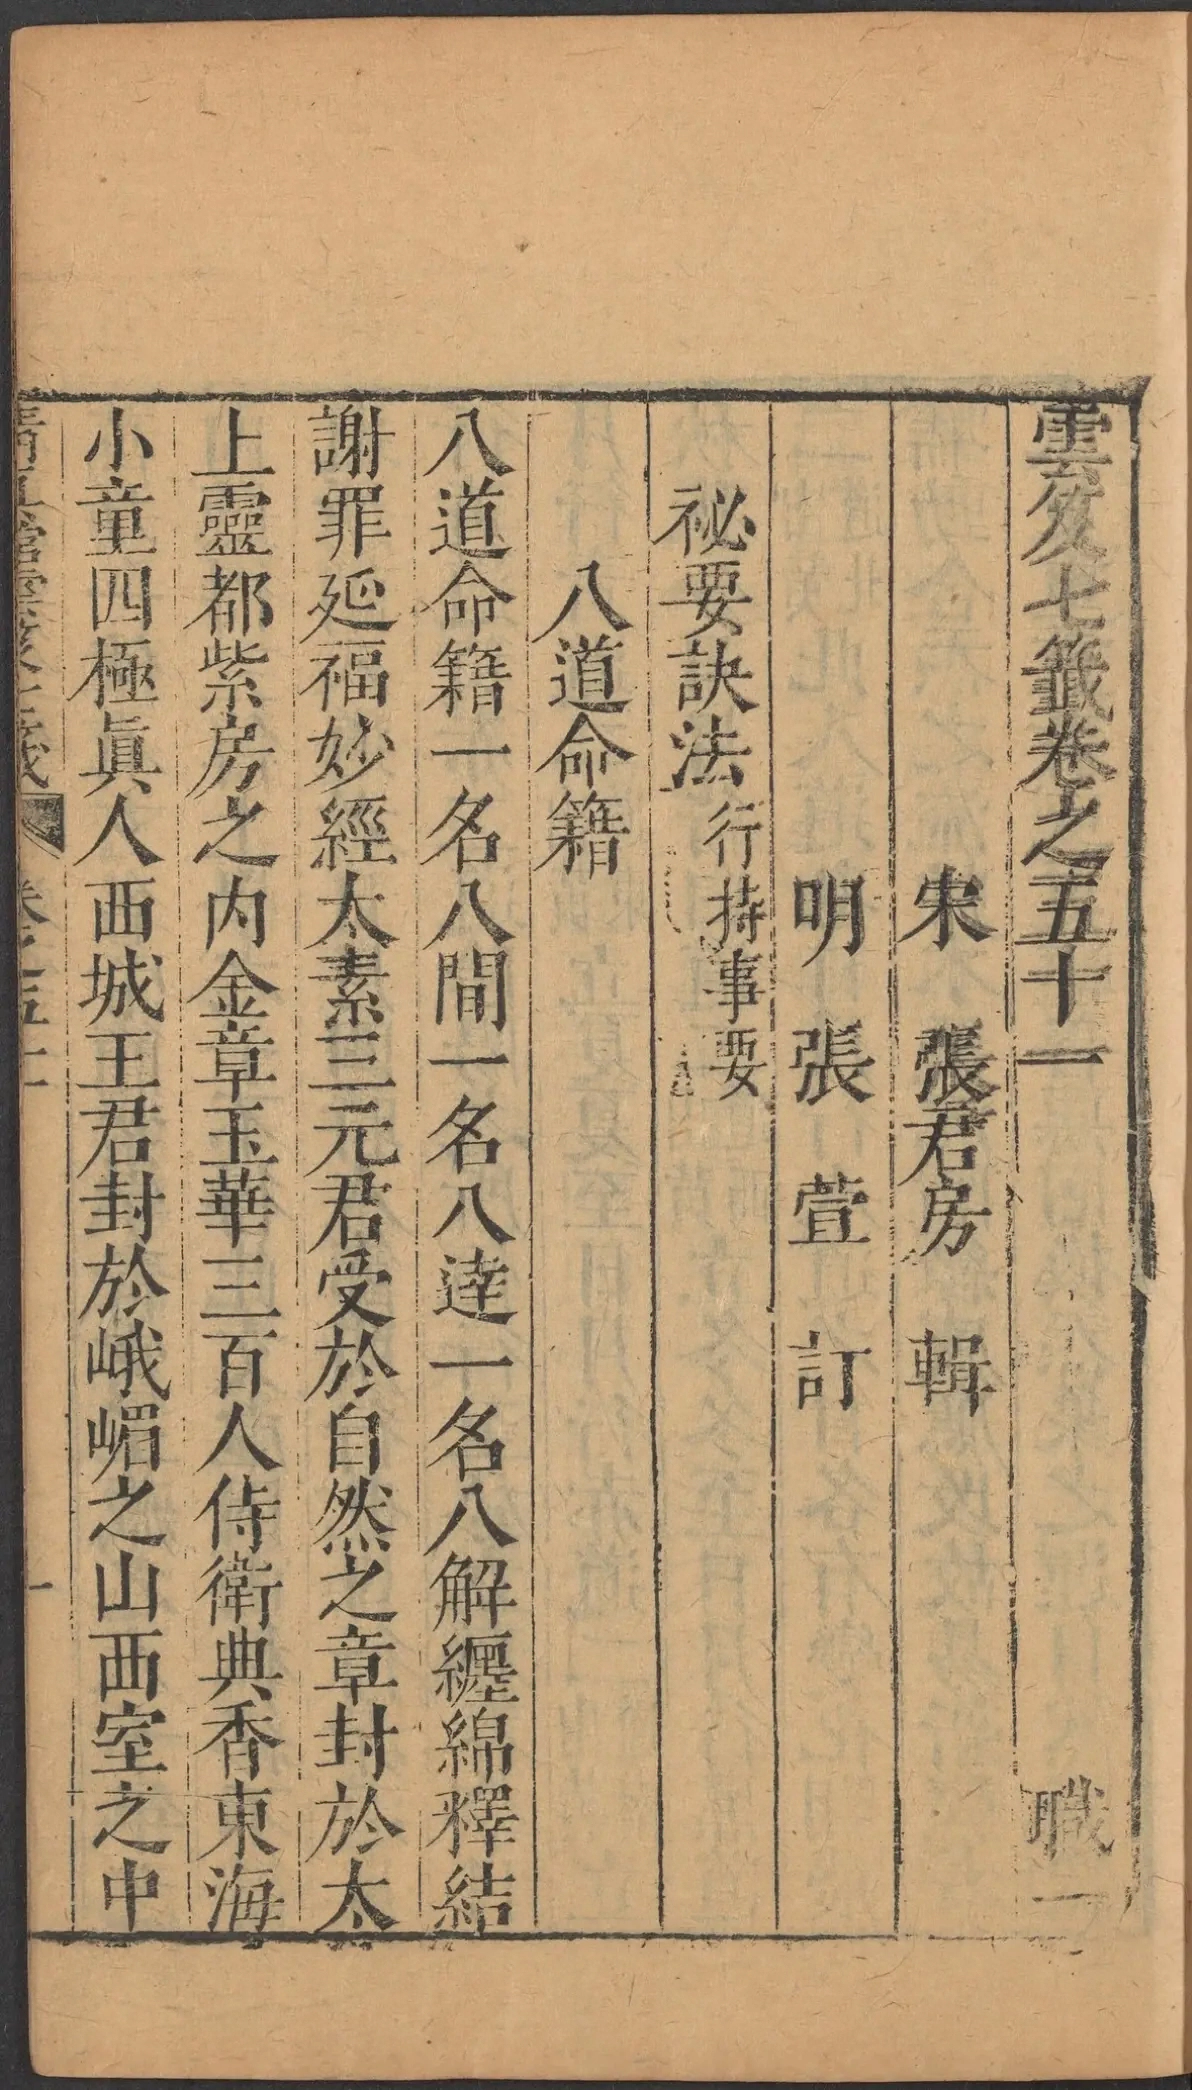 雲笈七籤卷之五十一 職一
宋 張君房 輯
明 張 萱 訂
祕要訣法 行持事要
八道命籍
八道命籍一名八間一名八達一名八解纏綿釋結
謝罪延福妙經太素三元君受於自然之章封於太
上靈都紫房之内金章玉華三百人侍衛典香東海
小童四極眞人西城王君封於峨嵋之山西室之中
卷之五十一 一